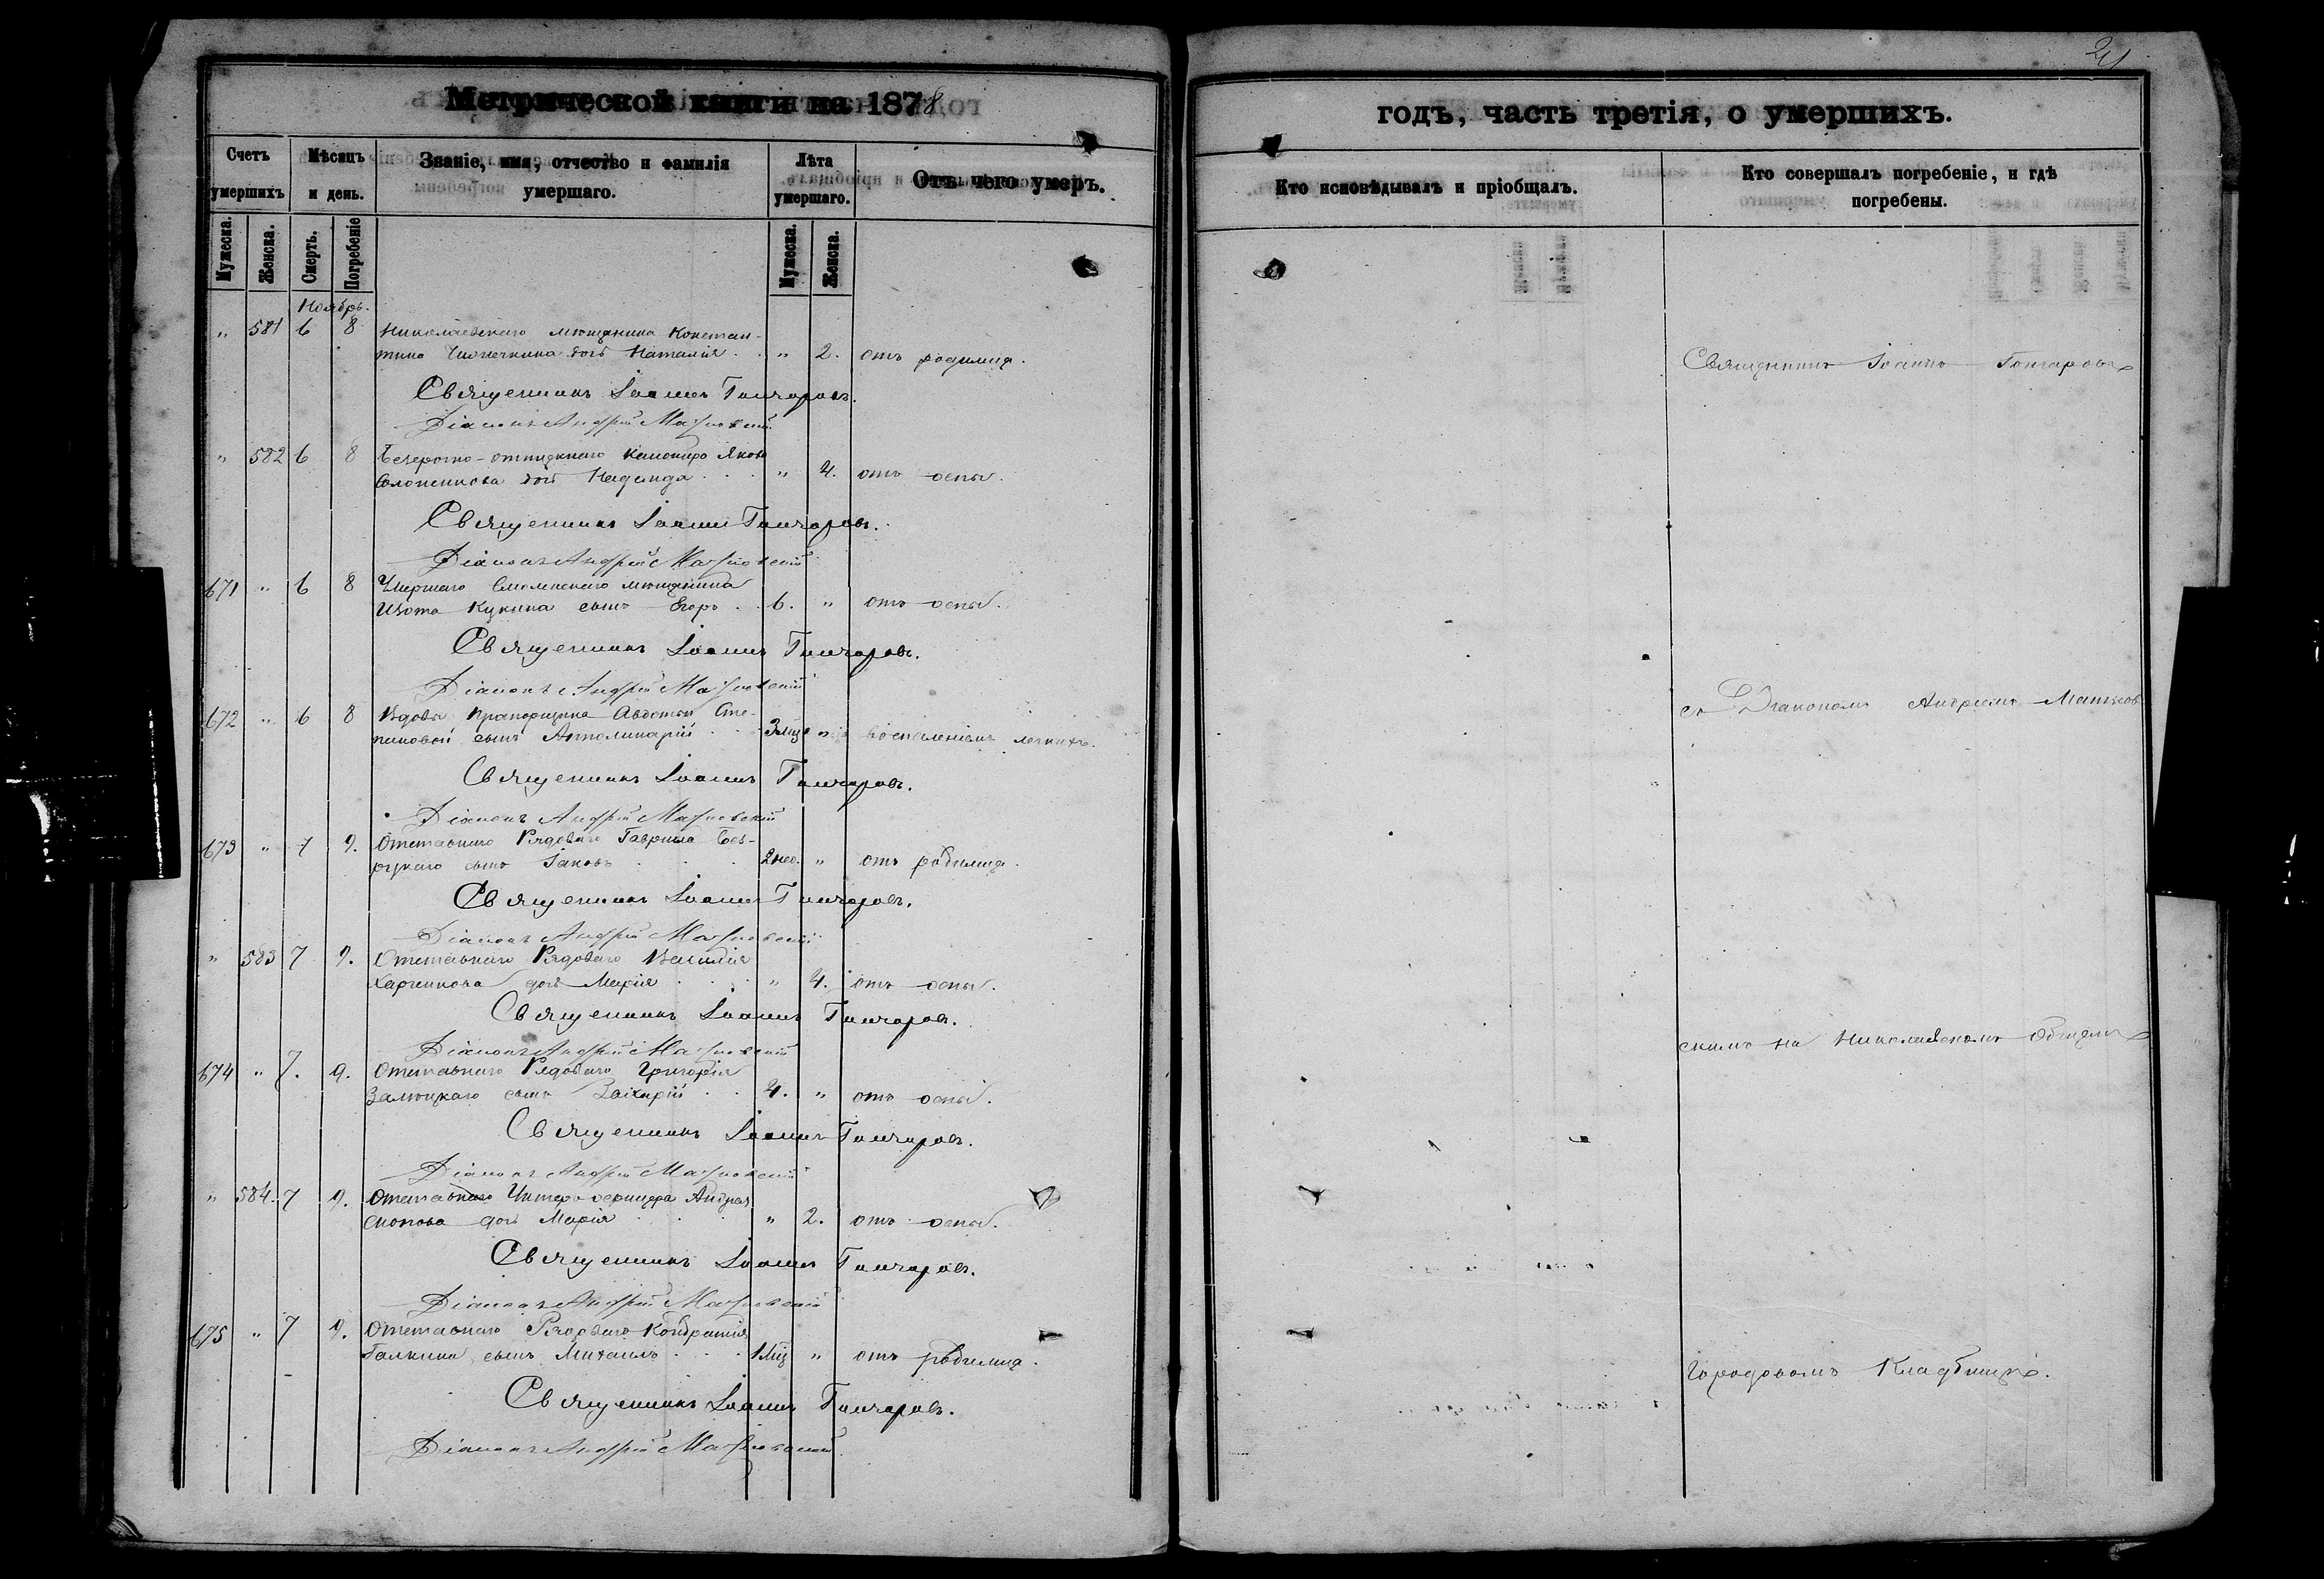 21
Метрической книги на 1878
годъ, часть третія, о умершихъ.
Счетъ умершихъ
Мѣсяцъ и день.
Званіе, имя, отчество и фамилія умершаго.
Лѣта умершаго.
Отъ чего умеръ.
Кто исповѣдывалъ и пріобщалъ.
Кто совершалъ погребеніе, и гдѣ погребены.
Мужеска.
Женска.
Смерть.
Погребеніе
Мужеска.
Женска.
Ноябрь.
" 581 6 8 Николаевскаго мѣщанина Констан-
тина дочь Наталія . . " 2. отъ родимца.
Священникъ Іоаннъ Гончаровъ.
Діаконъ Андрей Матковскій
" 582 6 8 Безсрочно-отпускнаго Якова
дочь Надежда . . . " 4. отъ оспы.
Священникъ Іоаннъ Гончаровъ.
Діаконъ Андрей Матковскій
671 " 6 8 Умершаго Смоленскаго мѣщанина
Изота Кукина сынъ Егоръ . . 6. " отъ оспы.
Священникъ Іоаннъ Гончаровъ.
Діаконъ Андрей Матковскій
672 " 6 8 Вдовы Прапорщика Авдотьи Сте-
пановой сынъ Апполинарій . . 3 мц. " воспаленіемъ легкихъ.
Священникъ Іоаннъ Гончаровъ.
Діаконъ Андрей Матковскій
673 " 7 9. Отставнаго Рядоваго Гавріила Без-
рукаго сынъ Іаковъ . . . 2 нед. " отъ родимца.
Священникъ Іоаннъ Гончаровъ.
Діаконъ Андрей Матковскій
" 583 7 9. Отставнаго Рядоваго Василія
Харченкова дочь Марія . . . " 4. отъ оспы.
Священникъ Іоаннъ Гончаровъ.
Діаконъ Андрей Матковскій
674 " 7. 9. Отставнаго Рядоваго Григорія
сынъ Захарій . . 4. " отъ оспы.
Священникъ Іоаннъ Гончаровъ.
Діаконъ Андрей Матковскій
" 584. 7 9. Отставнаго Унтеръ-офицера Андрея
дочь Марія . . . " 2. отъ оспы.
Священникъ Іоаннъ Гончаровъ.
Діаконъ Андрей Матковскій
675 " 7 9. Отставнаго Рядоваго Кондратія
Галкина сынъ Михаилъ . . . 1 мц " отъ родимца.
Священникъ Іоаннъ Гончаровъ.
Діаконъ Андрей Матковскій
Священникъ Іоаннъ Гончаровъ
съ Діакономъ Андреемъ Матков-
скимъ на Николаевскомъ Общемъ
Городовомъ Кладбищѣ.